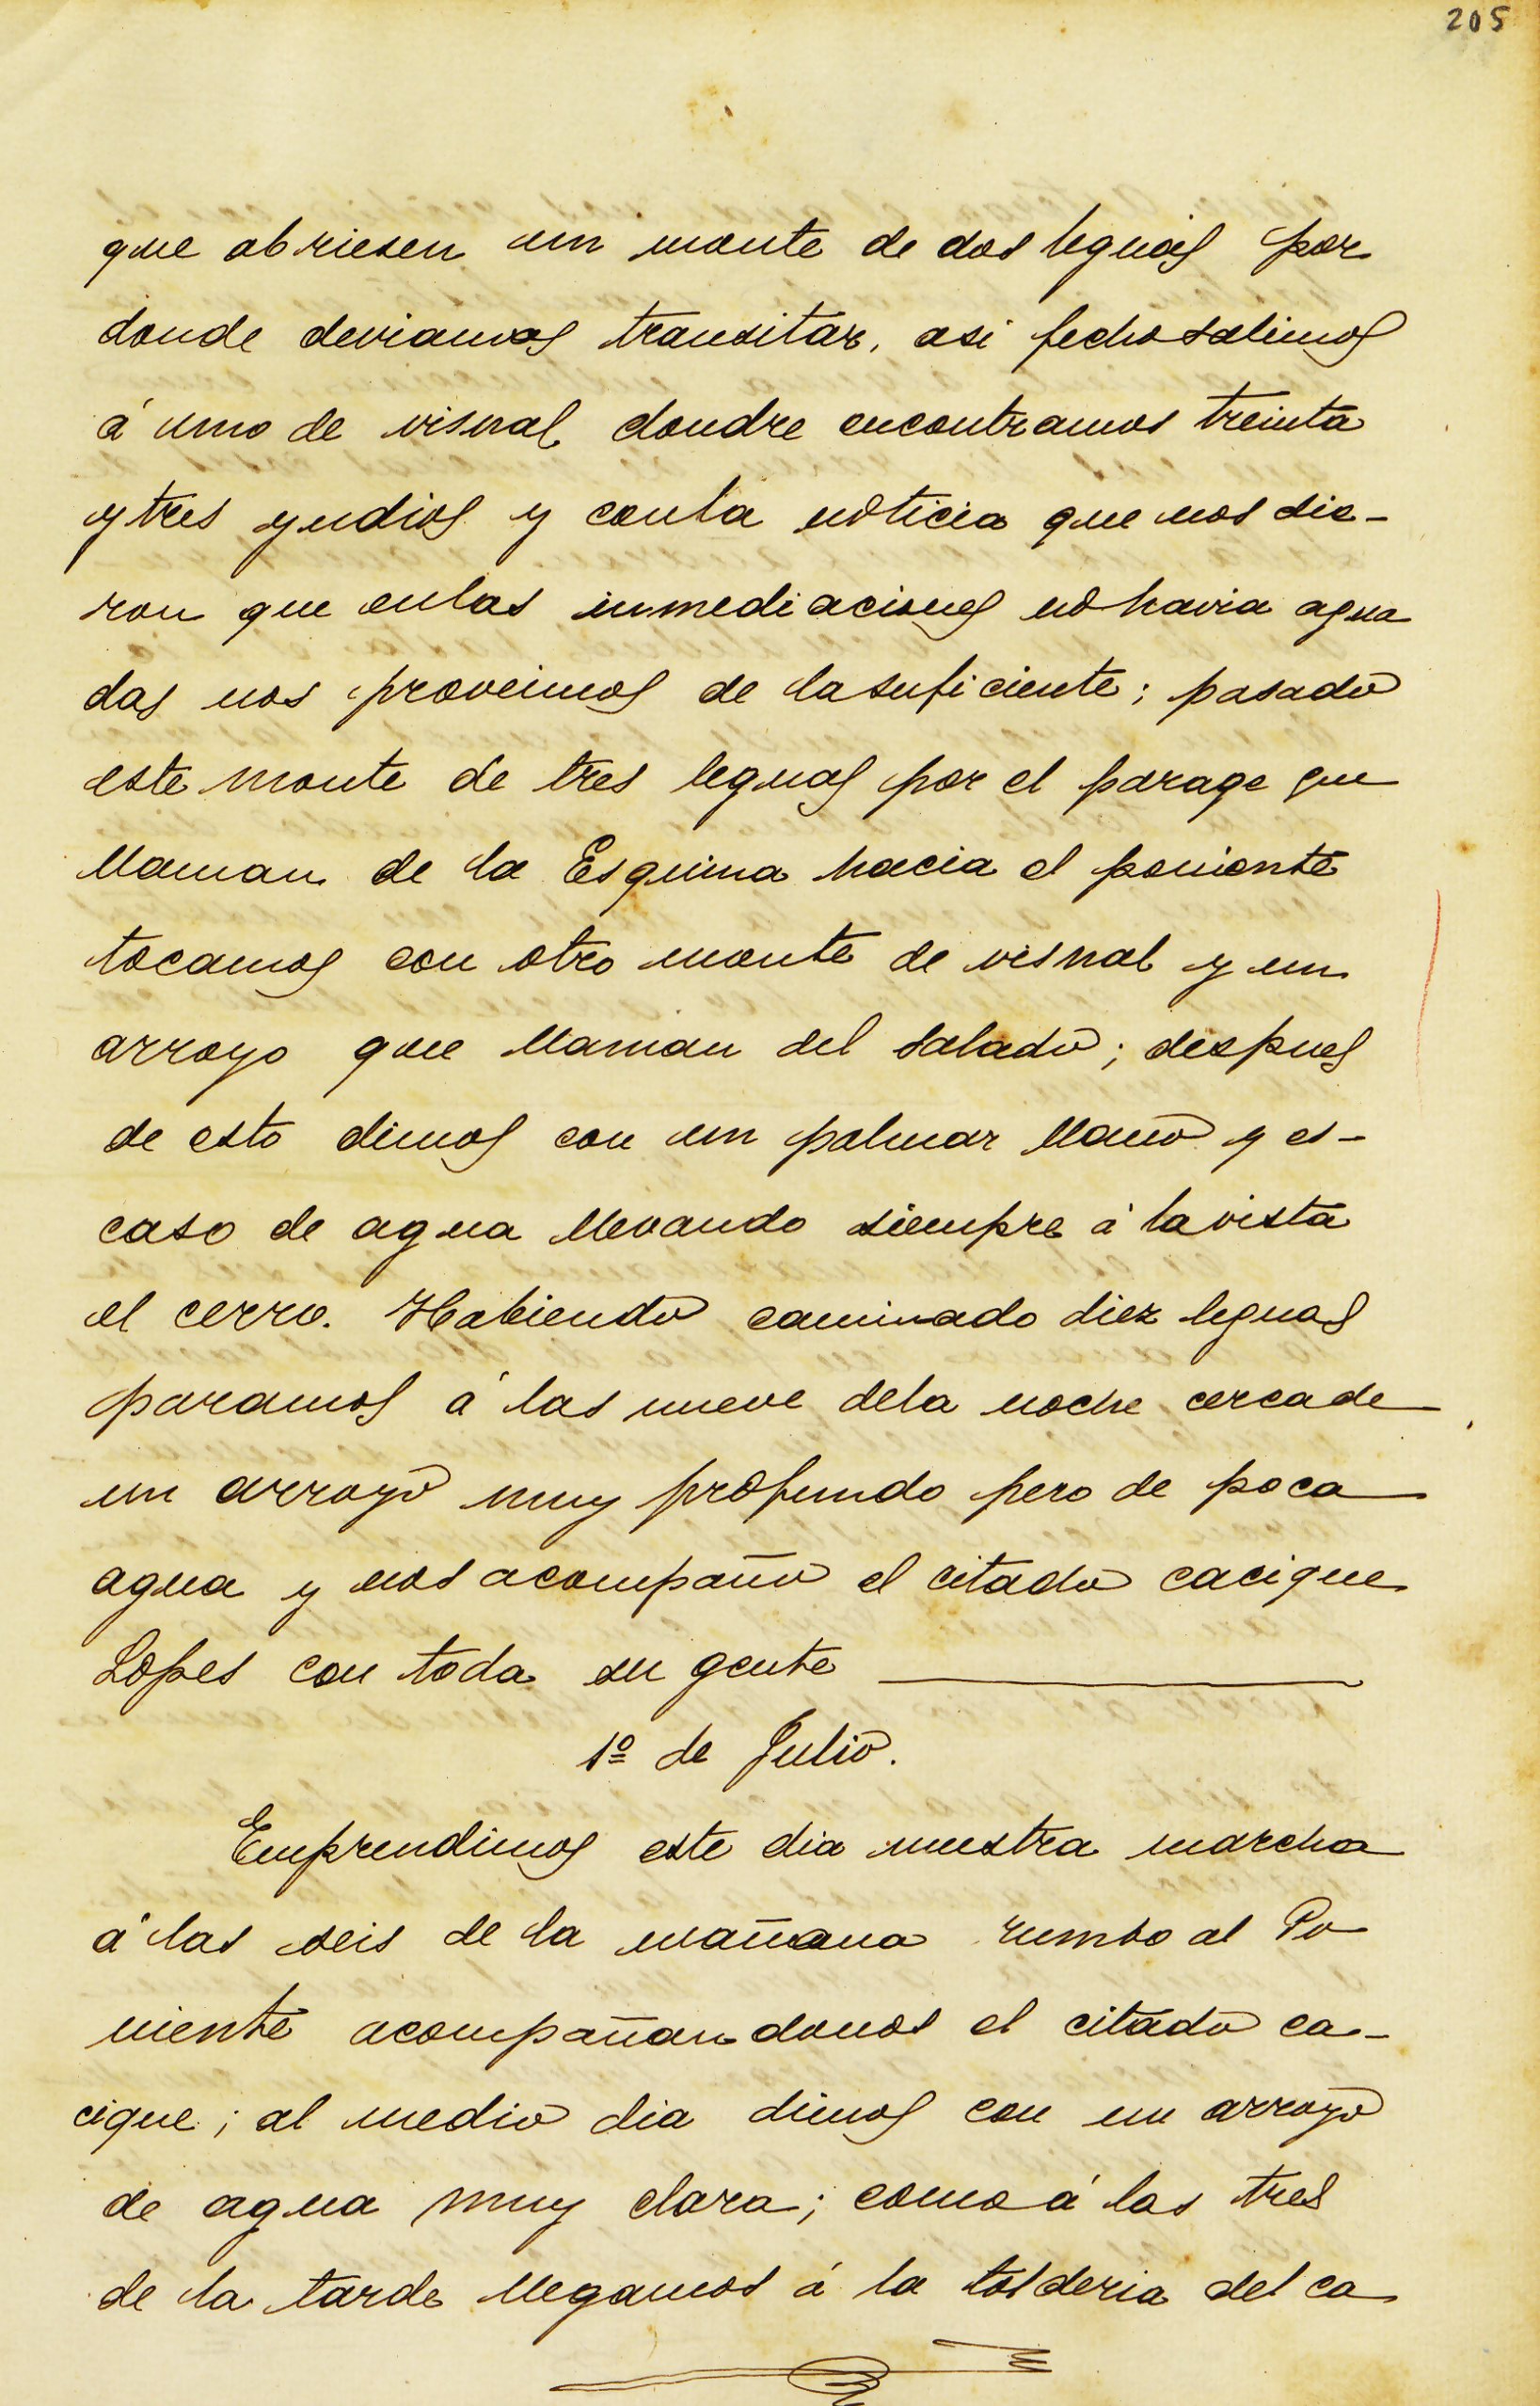 205
que abriesen un monte de dos leguas por
donde deviamos transitar, asi fecho salimos
á uno de visnal dondre encontramos treinta
y tres yndios y conla noticia que nos die-
ron que enlas inmediaciones no havia agua
das nos proveimos de la suficiente; pasado
este monte de tres leguas por el parage que
llaman de la Esquina hacia el poniente
tocamos con otro monte de visnal y un
arroyo que llaman del Salado; despues
de esto dimos con un palmar llano y es-
caso de agua llevando siempre á la vista
el cerro. Habiendo caminado diez leguas
paramos á las nueve dela noche cerca de
un arroyo muy profundo pero de poca
agua y nos acompaño el citado cacique
Lopes con toda su gente
1º de Julio.
Emprendimos este dia nuestra marcha
á las seis de la mañana rumbo al Po
niente acompañandonos el citado ca-
cique; al medio dia dimos con un arroyo
de agua muy clara; como á las tres
de la tarde llegamos á la tolderia del ca